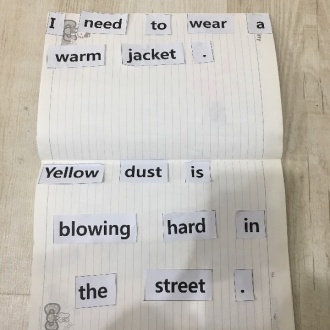 I need to wear a
warm jacket .
Yellow dust is
blowing hard in
the street .